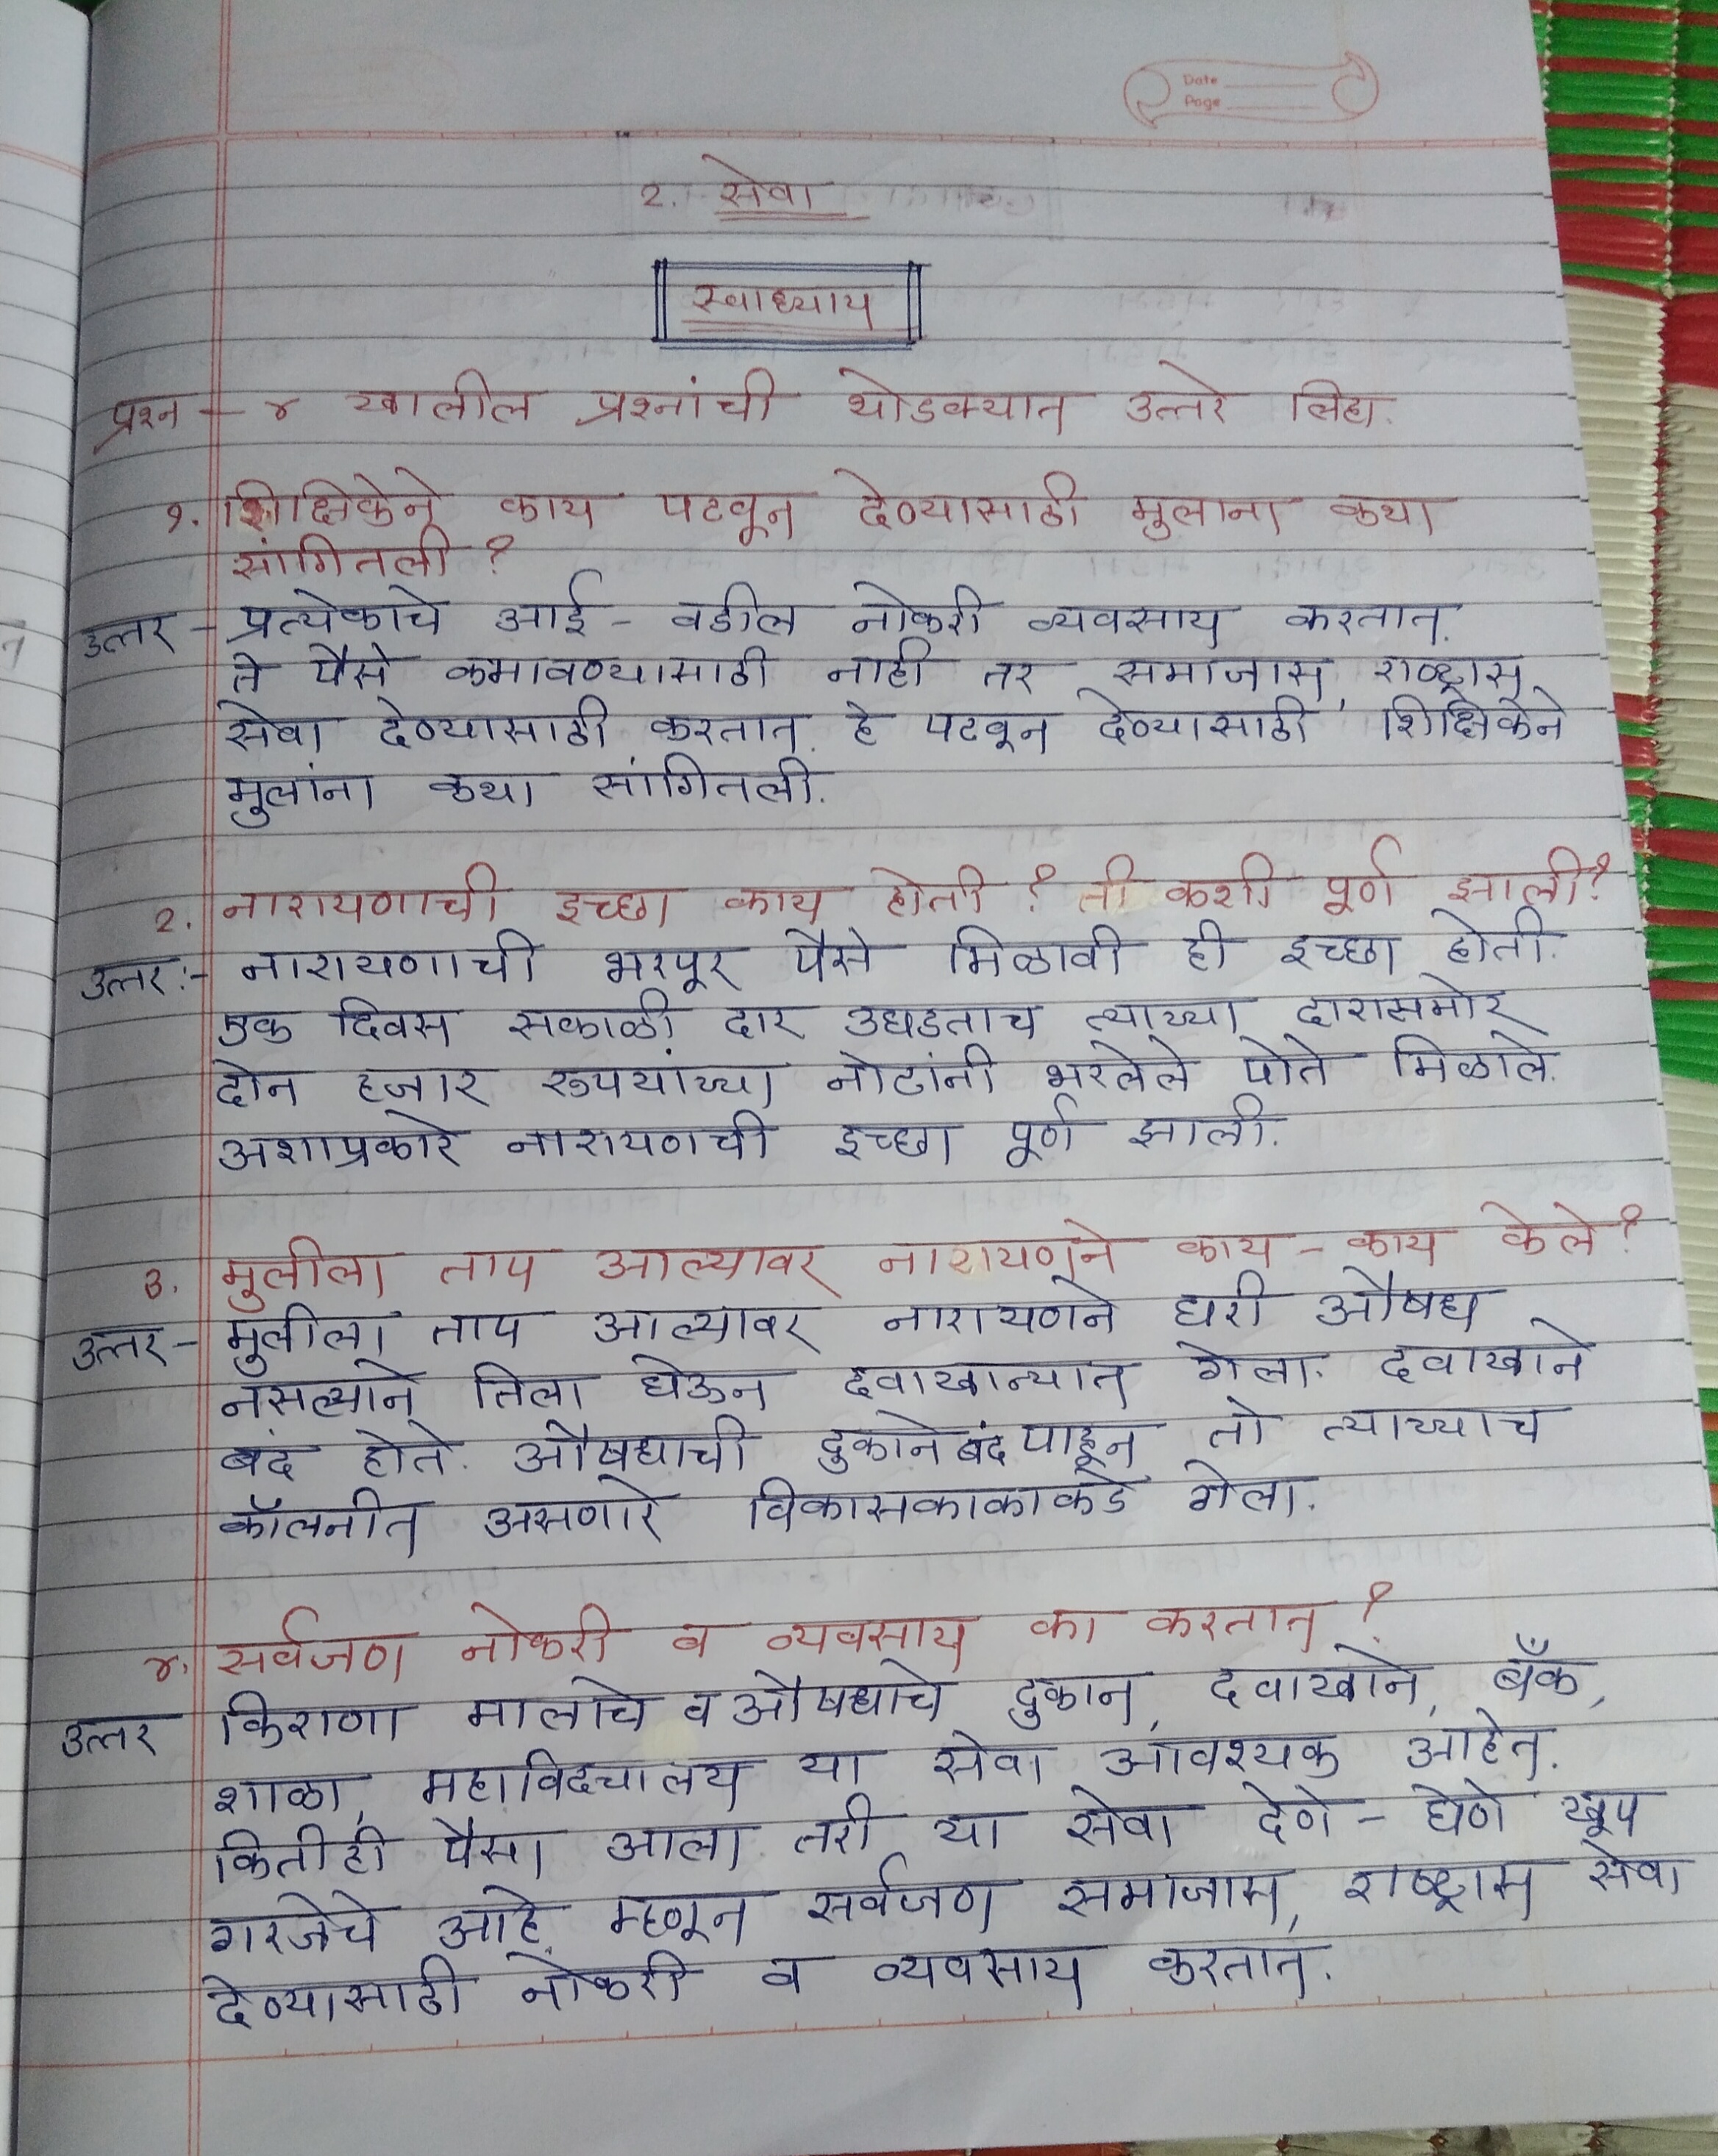 Date
Page
२. सेवा
स्वाध्याय
प्रश्न - ४ खालील प्रश्नांची थोडक्यात उत्तरे लिहा.
१. शिक्षिकेने काय पटवून देण्यासाठी मुलाना कथा
सांगितली ?
उत्तर - प्रत्येकाचे आई - वडील नोकरी व्यवसाय करतात.
ते पैसे कमावण्यासाठी नाही तर समाजास, राष्ट्रास
सेवा देण्यासाठी करतात. हे पटवून देण्यासाठी शिक्षिकेने
मुलांना कथा सांगितली.
२. नारायणाची इच्छा काय होती ? ती कशी पूर्ण झाली ?
उत्तर :- नारायणाची भरपूर पैसे मिळावी ही इच्छा होती.
एक दिवस सकाळी दार उघडताच त्याच्या दारासमोर
दोन हजार रुपयांच्या नोटांनी भरलेले पोते मिळाले.
अशाप्रकारे नारायणची इच्छा पूर्ण झाली.
३. मुलीला ताप आल्यावर नारायणने काय - काय केले ?
उत्तर - मुलीला ताप आल्यावर नारायणने घरी औषध
नसल्याने तिला घेऊन दवाखान्यात गेला. दवाखाने
बंद होते. औषधाची दुकाने बंद पाहून तो त्याच्याच
कॉलनीत असणारे विकासकाकाकडे गेला.
४. सर्वजण नोकरी व व्यवसाय का करतात ?
उत्तर किराणा मालाचे व औषधाचे दुकान, दवाखाने, बँक,
शाळा, महाविदयालय या सेवा आवश्यक आहेत.
कितीही पैसा आला तरी या सेवा देणे - घेणे खूप
गरजेचे आहे. म्हणून सर्वजण समाजास, राष्ट्रास सेवा
देण्यासाठी नोकरी व व्यवसाय करतात.